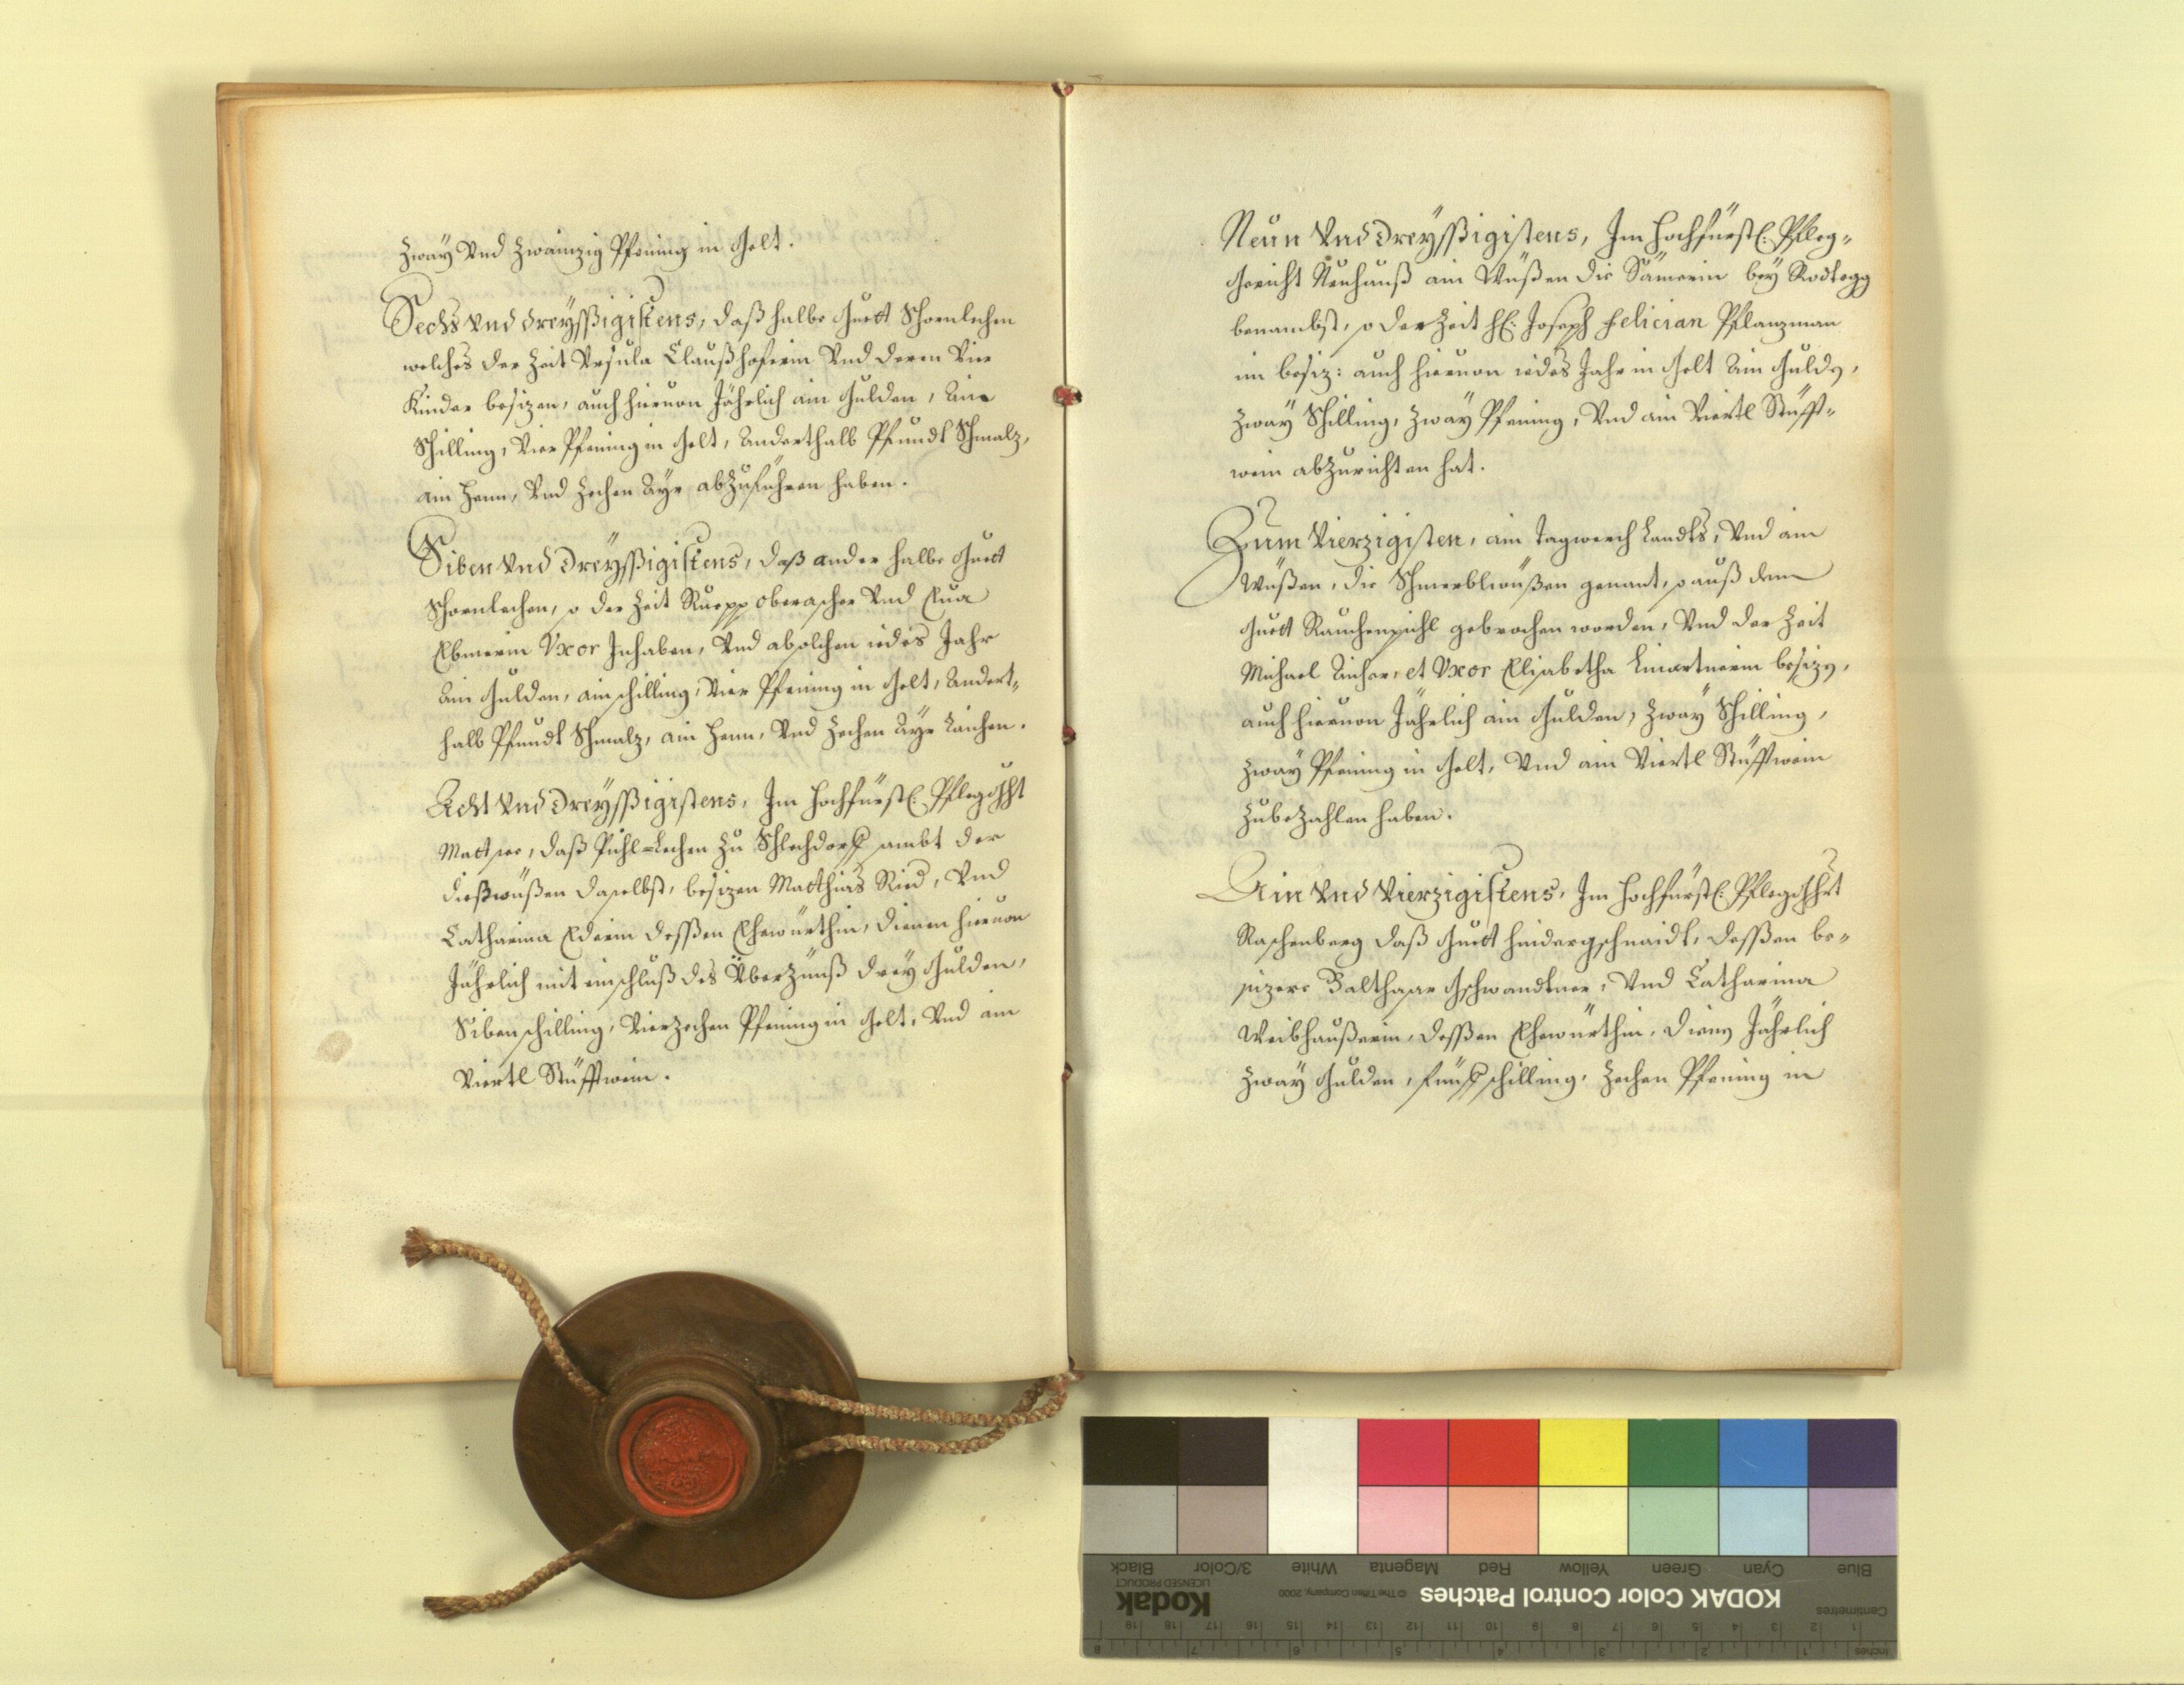 Zway Vnd Zwainzig Pfening in Gelt.
Sechs Vnd dreyssigistens, daß halbe Guett Schornlechen
welches der Zeit Vrsula Claußhoferin Vnd deren Vier
Kinder besizen, auch hieruon Jährlich ain Gulden, ain
Schilling, Vier Pfening in Gelt, Anderthalb Pfundt Schmalz,
ain Henn, Vnd Zechen Ayr abZuführen haben.
Siben Vnd dreyssigistens, daß ander halbe Guett
Schornlechen, so der Zeit Ruepp Oberascher Vnd Eua
Ebnerin Vxor Inhaben, Vnd absolchen iedes Jahr
ain Gulden, ain schilling, Vier Pfening in Gelt, Andert-
halb Pfundt Schmalz, ain Henn, Vnd Zechen Ayr Raichen.
Acht Vnd dreyssigistens, Im Hochfürstl: Pfleggricht
Mattsee, daß Pichl-Lechen Zu Schlechdorf sambt der
daselbst, besizen Matthias Ried, Vnd
Catharina Ederin dessen Ehewürthin, dienen hieruon
Jährlich mit einschluß des ÜberZünß drey Gulden,
Siben schilling, VierZechen Pfening in Gelt, Vnd ain
Viertl Stüfftwein.
Neun Vnd dreyssigistens, Im Hochfürstl: Pfleg-
Gericht Neuhauß ain Wüßen die Sämerin bey Rodtegg
benambst, so der Zeit H: Joseph Felician Pflanzman
im besiz: auch hieruon iedes Jahr in Gelt ain Guldn,
Zway Schilling, Zway Pfening, Vnd ain Viertl Stüfft-
wein abZurichten hat.
Zum Vierzigisten, ain Tagwerch Landts, Vnd ain
Wüßen, die Schmerblwüßen genant, so auß dem
Guett Rauchenpichl gebrochen worden, Vnd der Zeit
Michael Aicher, et Vxor Elisabetha besizn,
auch hieruon Jährlich ain Gulden, Zway Schilling,
Zway Pfening in Gelt, Vnd ain Viertl Stüfftwein
Zubezahlen haben.
Ain Vnd Vierzigistens, Im Hochfürstl: Pfleggricht
Raschenberg daß Guett hindergschnaidt, dessen be-
sizere Balthasar Gschwandtner, Vnd Catharina
Weibhauserin, dessen Ehewürthin, dienn Jährlich
Zway Gulden, fünf schilling, Zechen Pfening in
KODAK Color Control Patches
© The Tiffen Company, 2000
Kodak
LICENSED PRODUCT
Blue Cyan Green Yellow Red Magenta White 3/Color Black
Centimetres 1 2 3 4 5 6 7 8 9 10 11 12 13 14 15 16 17 18 19
Inches 1 2 3 4 5 6 7 8